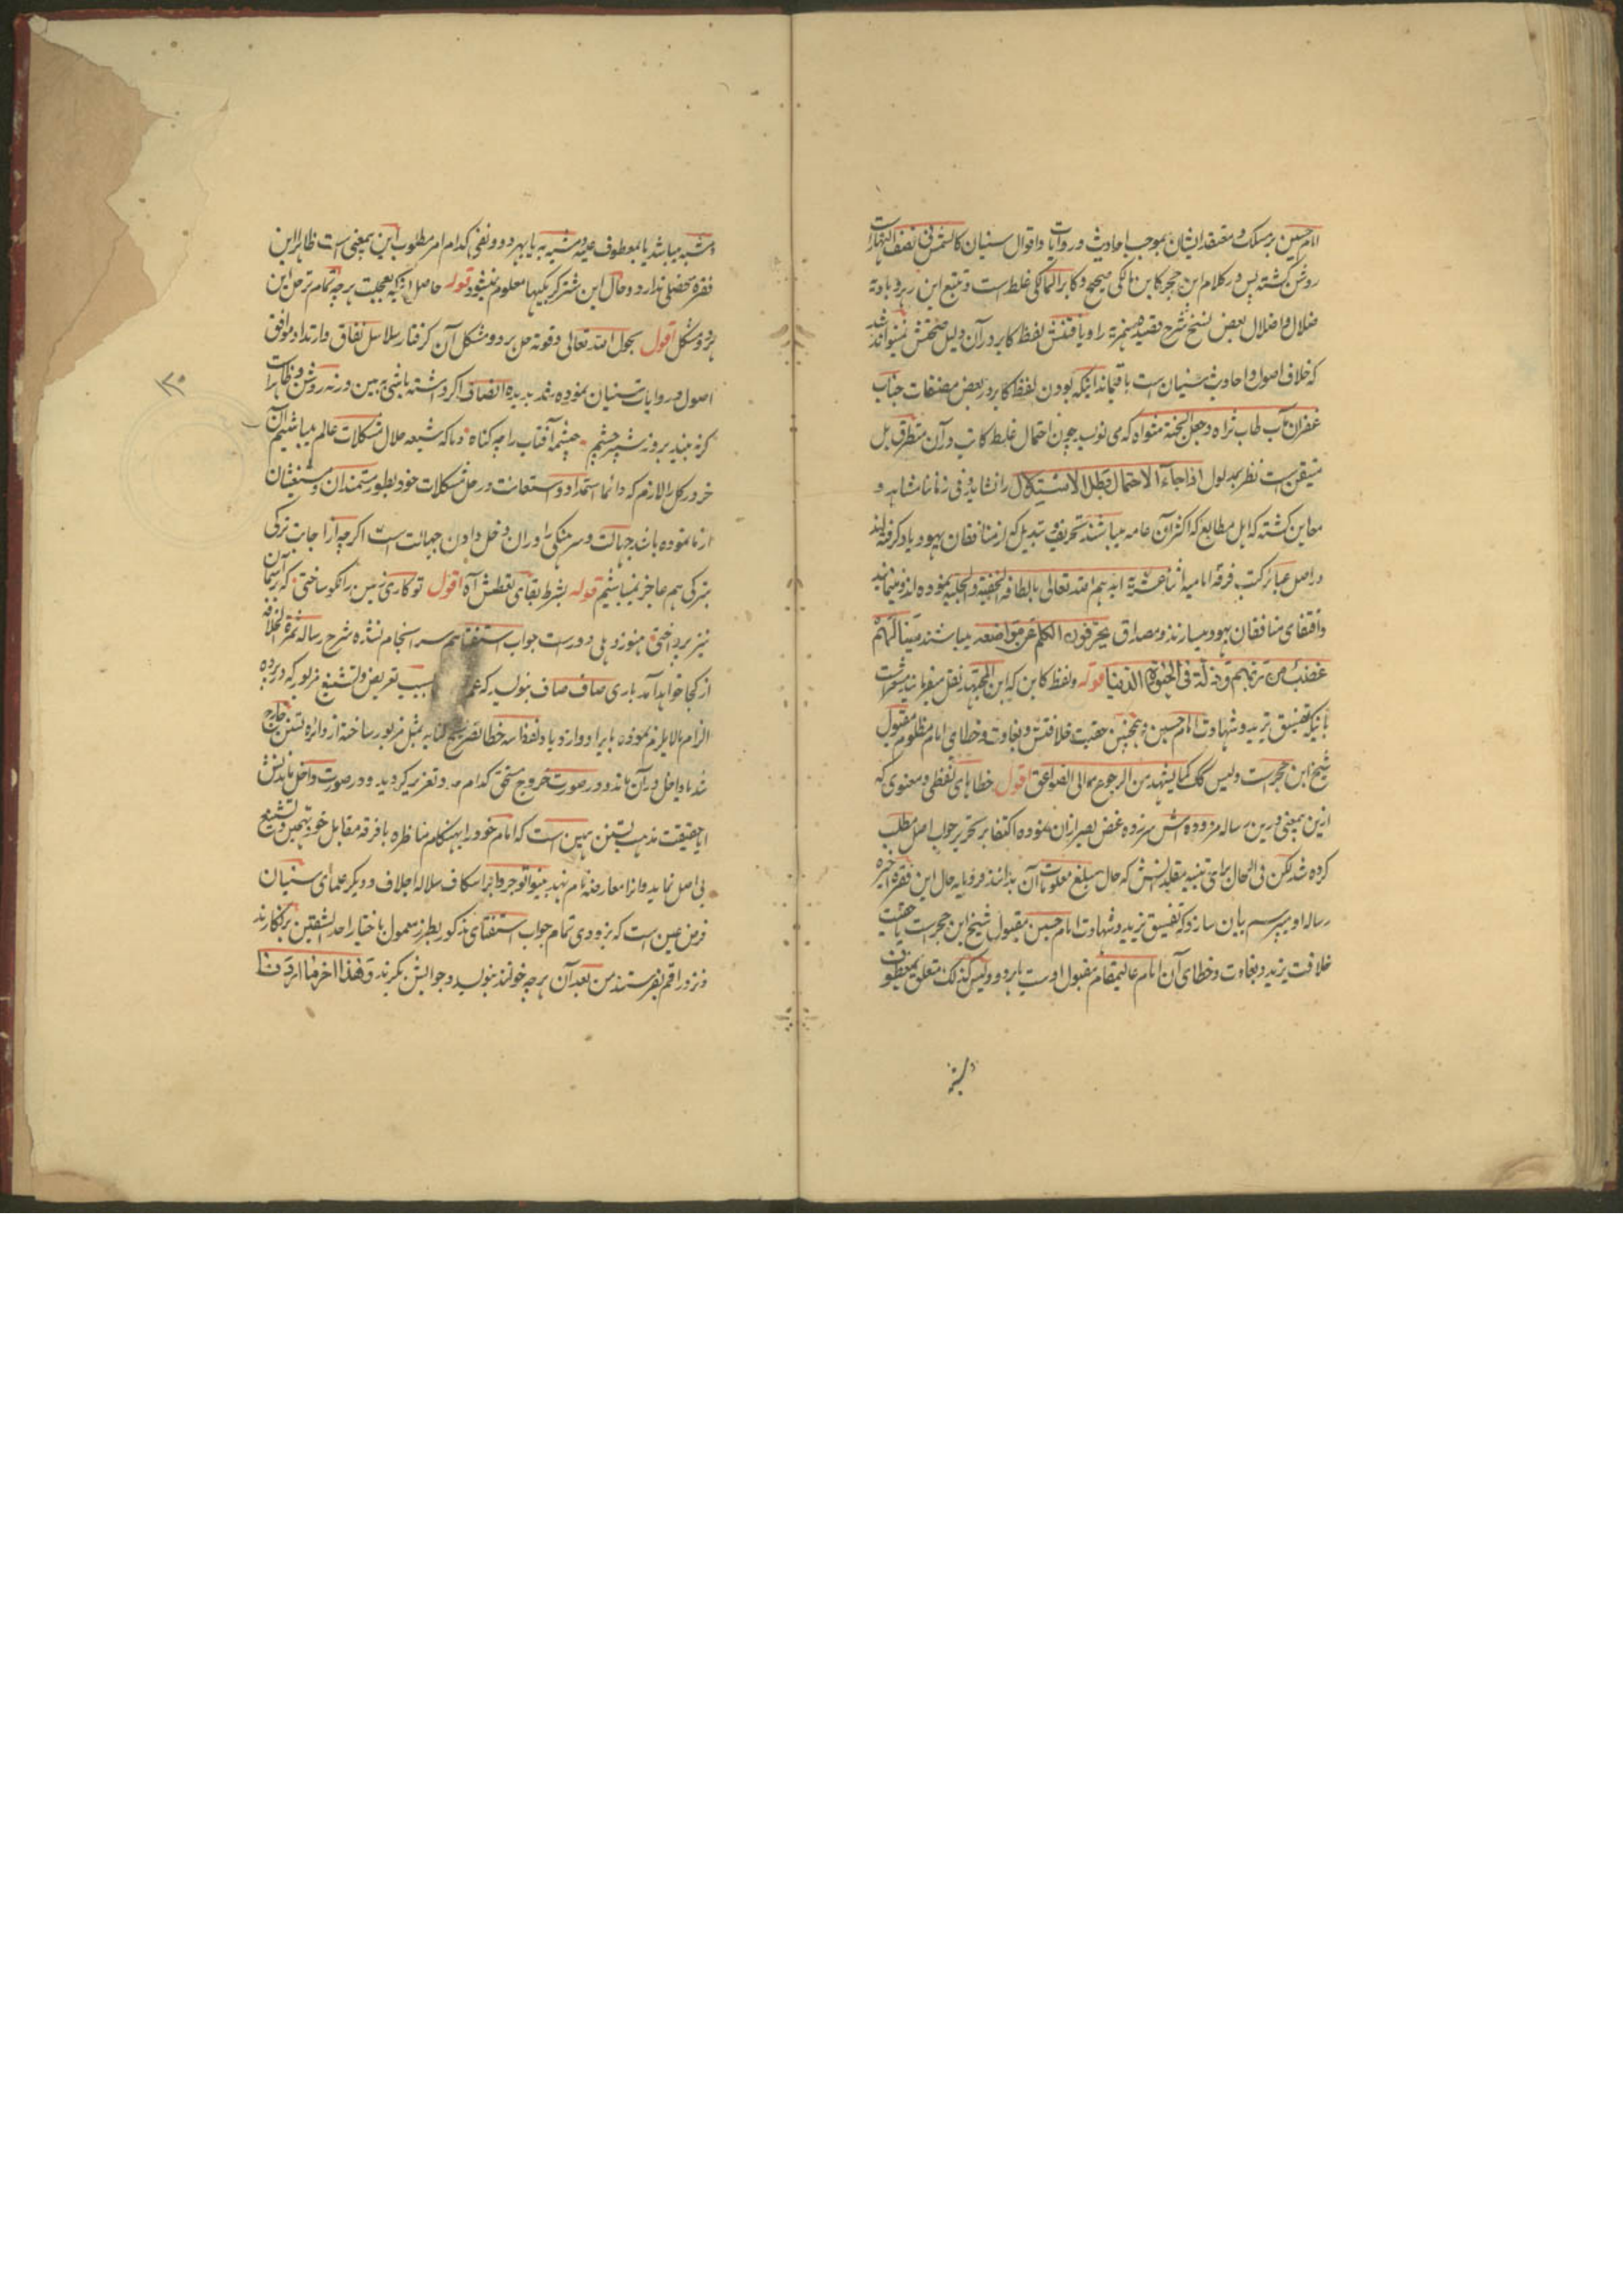 امام حسین بر مسلک و معتقد ایشان بموجب احادیث و روایات و اقوال سنیان کالشمس فی نصف النهار
روشن گشته پس در کلام ابن حجر کابن مالکی صحیح و کابر المالکی غلط است و تتبع این
ضلال و اضلال بعض نسخ شرح قصیده همزیه را و یافتنش لفظ کابر در آن دلیل صحتش نمیتواند شد
که خلاف اصول و احادیث سنیان است باقیماند اینکه بودن لفظ کابر در بعض مصنفات جناب
غفران مآب طاب ثراه و جعل الجنة مثواه که می نویسد چون احتمال غلط کاتب در آن متطرق بل
متیقن است نظر بمدلول اذا جاء الاحتمال بطل الاستدلال را نشاید و فی زماننا مشاهد و
معاین گشته که اهل مطابع که اکثر آن عامه میباشند تحریف و تبدیل که از منافقان یهود یاد گرفته اند
در اصل عبائر کتب فرقه امامیه اثنا عشریه ایدهم الله تعالی بالطافه الخفیة و الجلیة نموده اند و مینمایند
و اقتفای منافقان یهود میسازند و مصداق یحرفون الکلم عن مواضعه میباشند سینالهم
غضب من ربهم و ذلة فی الحیوة الدنیا قوله و لفظ کابن که این المجتهد نقل میفرمایند مشعر است
باینکه تفسیق یزید و شهادت امام حسین و همچنین حقیت خلافتش و بغاوت و خطای امام مظلوم مقبول
شیخ ابن حجر است و لیس کک کما یشهد من الرجوع الی الصواعق اقول خطاهای لفظی و معنوی که
ازین بمعنی درین رساله مزدوده اش سرزده غض بصر ازان نموده اکتفا بر تحریر جواب اصل مطلب
کرده شد لکن فی الحال برای تنبیه مقلدینش که حال مبلغ معلومات آن بدانند فرو مایه حال این فقره اخیره
رساله او میپرسم بیان سازد که تفسیق یزید و شهادت امام حسین مقبول شیخ ابن حجر است یا حقیت
خلافت یزید و بغاوت و خطای آن امام عالیمقام مقبول اوست یا هر دو و لیس کذلک متعلق بمعطوف
و مشبه میباشد یا بمعطوف علیه و مشبه به یا بهر دو و نفی کدام امر مطلوب این بمعنی است ظاهرا این
فقره محصلی ندارد و حال این شتر گربگیها معلوم نمیشود قوله حاصل اینکه بعجلت هر چه تمامتر حل این
هر دو مشکل اقول بحول الله تعالی و قوته حل هر دو مشکل آن گرفتار سلاسل نفاق و ارتداد موافق
اصول و روایات سنیان نموده شد بدیده انصاف اگر داشته باشی ببین ورنه روشن و ظاهر است
گر نه بیند بروز شپره چشم چشمه آفتاب را چه گناه و ما که شیعه حلال مشکلات عالم میباشیم آن
خر در گل را لازم که دائما استمداد و استعانت در حل مشکلات خود بطور مستمندان و مستغیثان
از ما نموده باشد جهالت و سرهنگی را در آن دخل دادن جهالت است اگرچه از اجابت ترکی
بترکی هم عاجز نمیباشیم قوله بشرط بقای تعطش آه اقول تو کاری زمین را نکو ساختی که بر آسمان
نیز پرداختی هنوز دهلی دور است جواب استفتا هم سر انجام نشده شرح رساله ثمرة الخلافة
از کجا خواهد آمد باری صاف صاف بنویسد که سبب تعریض و تشنیع مزبور که در پرده
الزام ما لا یلزم نموده بایراد وارد یا و لفظا سه خطا بتصریح کنایه مثل مزبور ساخته از دائره تسنن خارج
شد یا داخل در آن ماند و در صورت خروج مستحق کدام حد و تعزیر گردید و در صورت داخل ماندنش
ایا حقیقت مذهب تسنن همین است که امام خود را بهنگام مناظره با فرقه مقابل خود تهمین و تشنیع
بی اصل نماید و انرا معارضه نام نهد بینوا توجروا برا سکاف سلاله اجلاف و دیگر علمای سنیان
فرض عین است که بزودی تمام جواب استفتای مذکور بطرز معمول باختیار احد الشقین برنگارند
و نزد راقم بفرستند من بعد آن هر چه خواهند بنویسد و جوابش بگیرند و هذا اخر ما اردنا